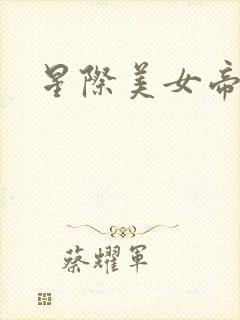 星際美女帝
蔡耀軍